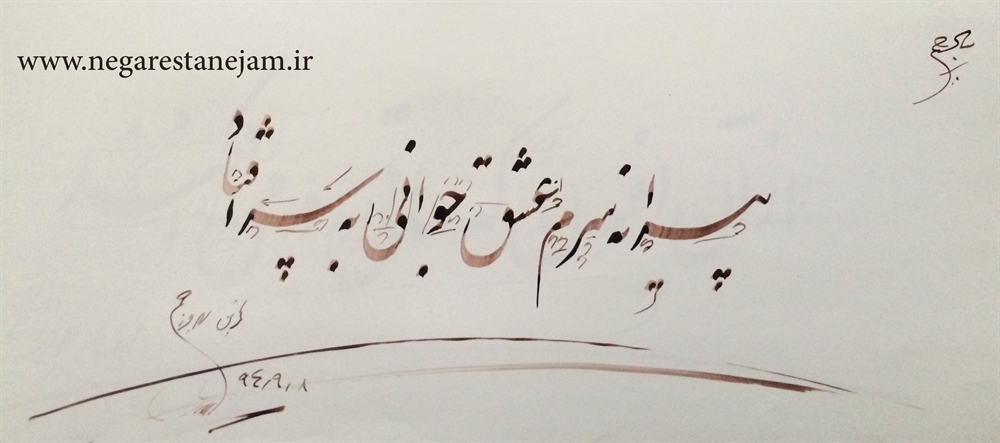 www.negarestanejam.ir
پیرانه سرم عشق جوانی به سر افتاد
۹۴٫۹٫۸